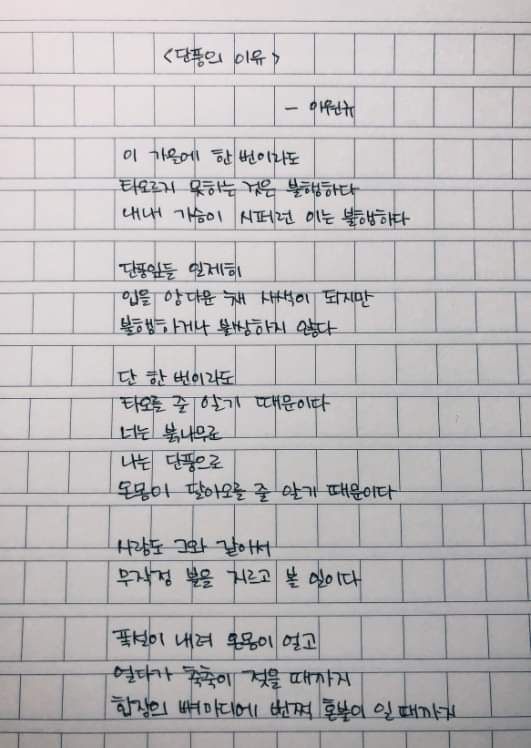 <단풍의 이유>
- 이원규
이 가을에 한 번이라도
타오르지 못하는 것은 불행하다
내내 가슴이 시퍼런 이는 불행하다
단풍잎들 일제히
입을 앙다문 채 사색이 되지만
불행하거나 불쌍하지 않다
단 한 번이라도
타오를 줄 알기 때문이다
너는 붉나무로
나는 단풍으로
온몸이 달아오를 줄 알기 때문이다
사랑도 그와 같아서
무작정 불을 지르고 볼 일이다
폭설이 내려 온몸이 얼고
얼다가 축축이 젖을 때까지
합장의 뼈마디에 번쩍 혼불이 일 때까지